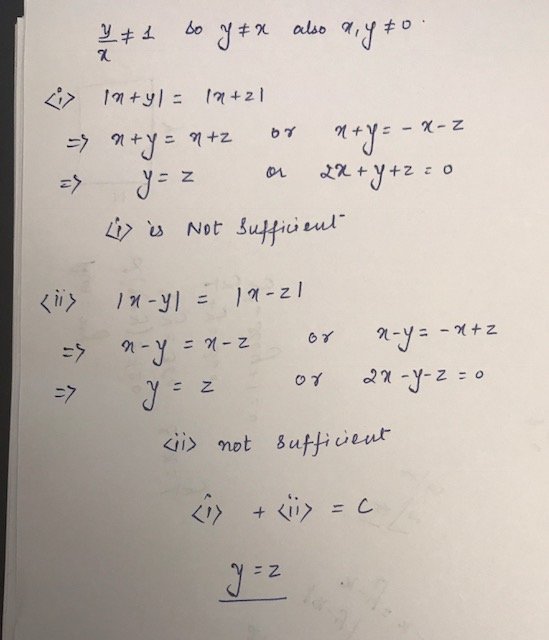 y/x ≠ 1 so y ≠ x also x, y ≠ 0.
<i> |x+y| = |x+z|
=> x+y = x+z or x+y = -x-z
=> y = z or 2x+y+z = 0
<i> is Not Sufficient
<ii> |x-y| = |x-z|
=> x-y = x-z or x-y = -x+z
=> y = z or 2x-y-z = 0
<ii> not sufficient
<i> + <ii> = C
y = z